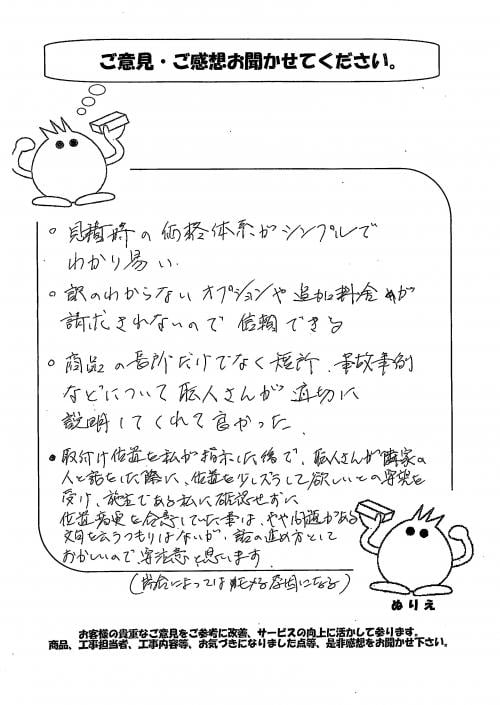 ご意見・ご感想お聞かせてください。
○ 見積時の価格体系がシンプルで
わかり易い
○ 訳のわからないオプションや追加料金が
請求されないので信頼できる
○ 商品の長所だけでなく短所、事故事例
などについて職人さんが適切に
説明してくれて良かった
● 取付け位置を私が指示した後で、職人さんが隣家の
人と話をした際に、位置を少しズラして欲しいとの要望を
受け、施主である私に確認せずに
位置変更を合意していた事は、やや問題がある
文句を云うつもりはないが、話の進め方として
おかしいので、要注意と思います
(場合によっては 原因になる)
ぬりえ
お客様の貴重なご意見をご参考に改善、サービスの向上に活かして参ります。
商品、工事担当者、工事内容等、お気づきになりました点等、是非感想をお聞かせ下さい。